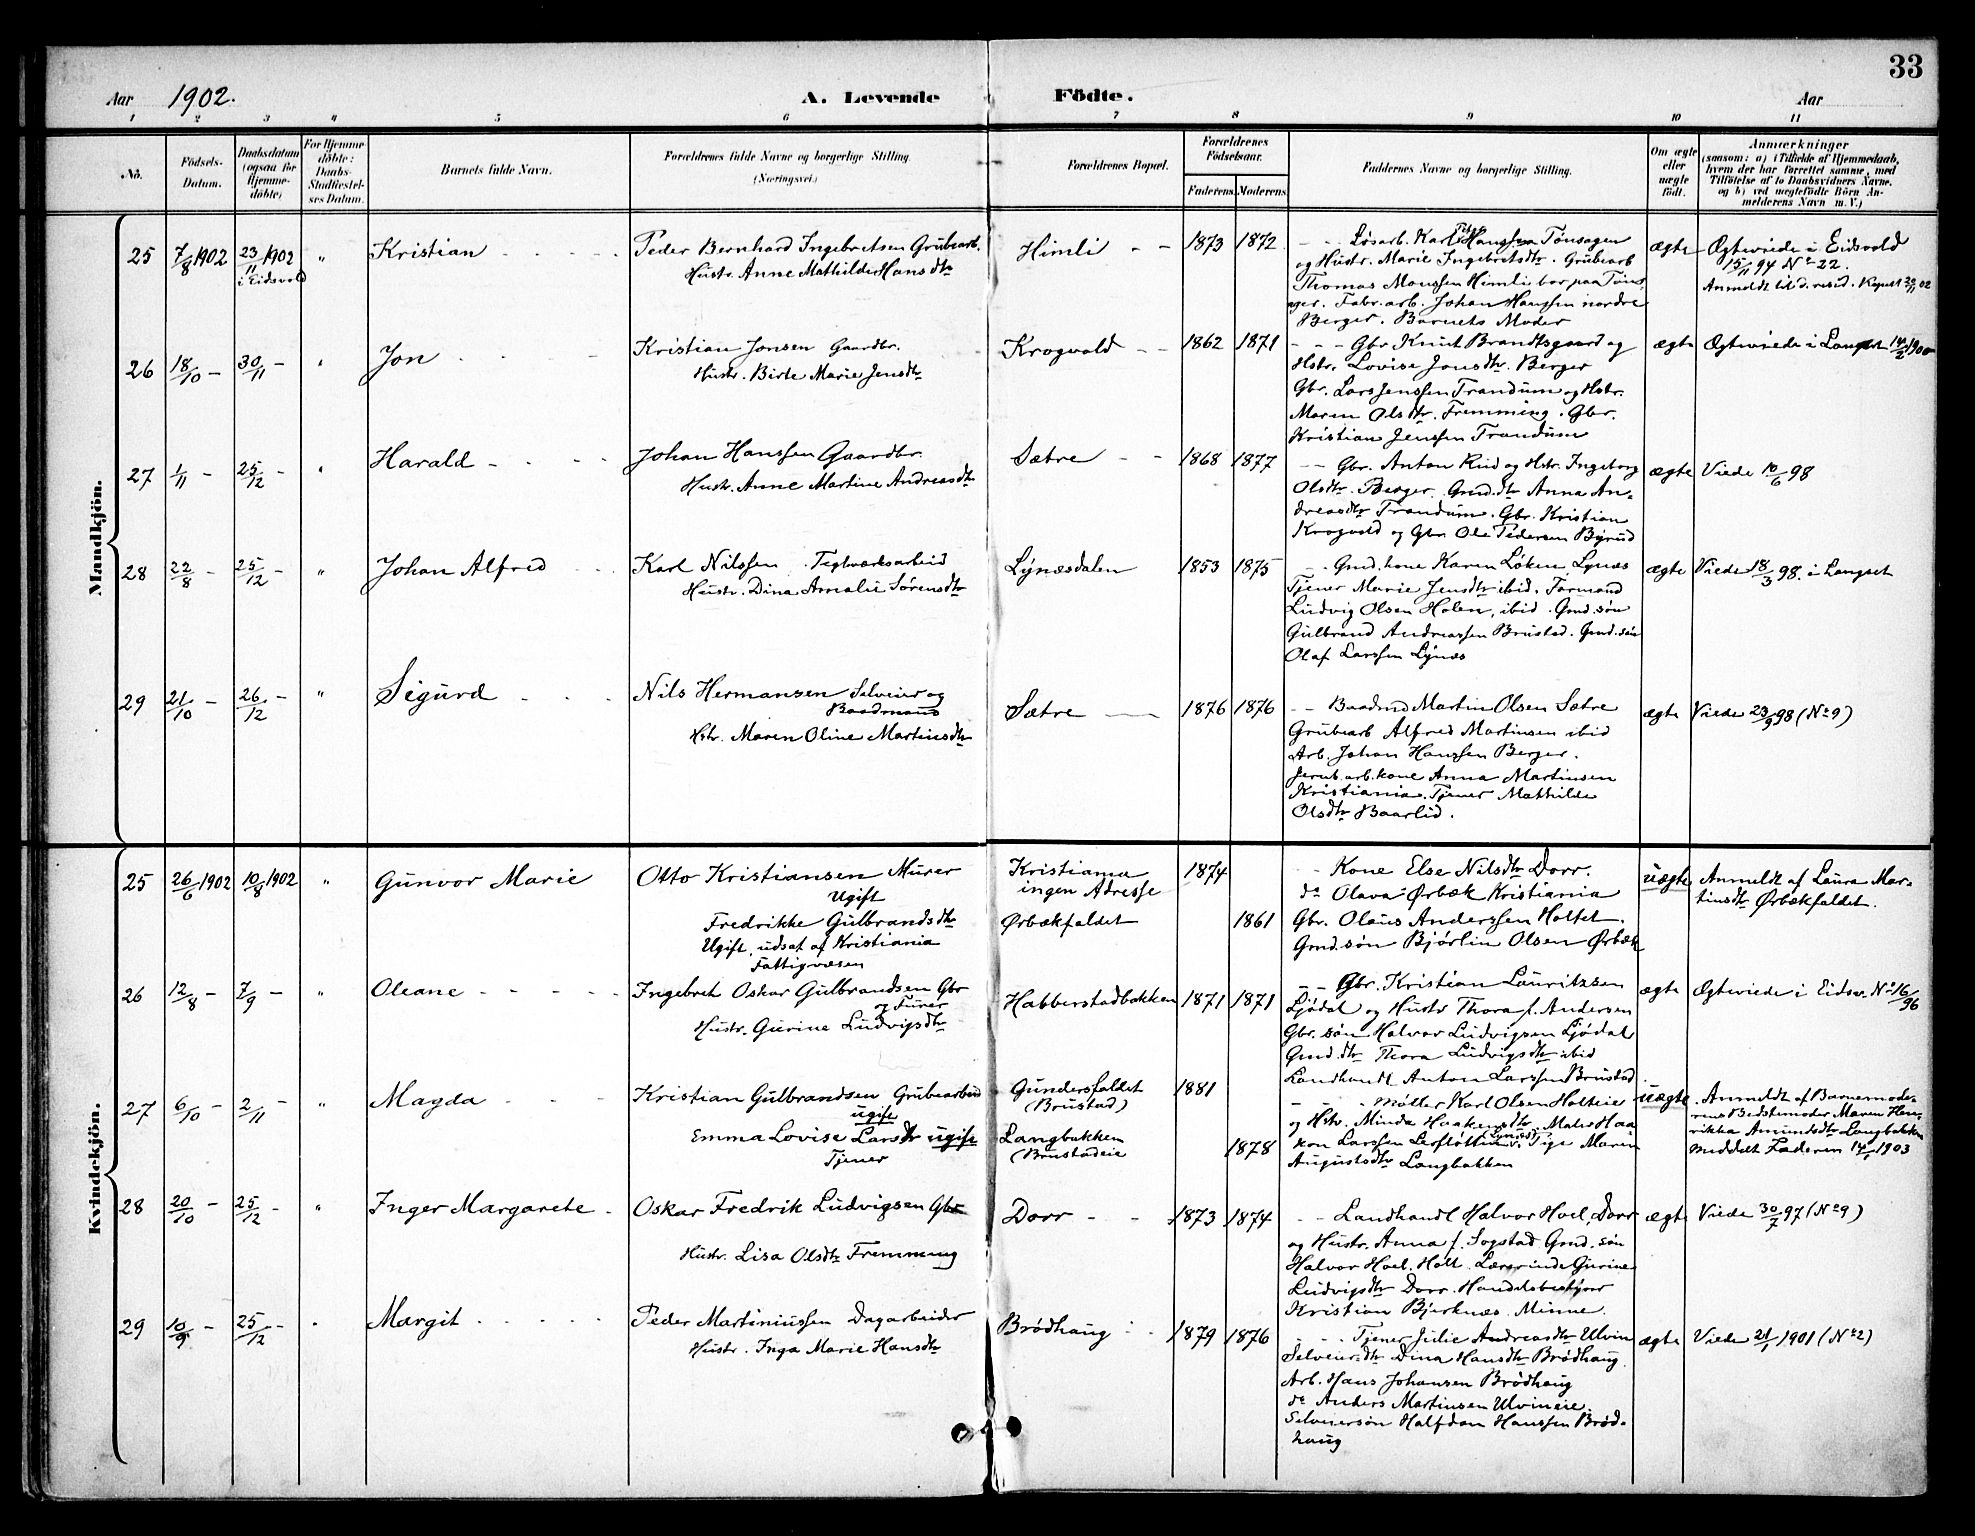 33
Aar 1902. A. Levende Födte. Aar
1 2 3 4 5 6 7 8 9 10 11
No. Födsels-Datum. Daabsdatum (ogsaa for Hjemmedöbte) For Hjemmedöbte: Daabs-Stadfæstelses Datum. Barnets fulde Navn. Forældrenes fulde Navne og borgerlige Stilling. (Næringsvei.) Forældrenes Bopæl. Forældrenes Födselsaar. Faderens Moderens Faddernes Navne og borgerlige Stilling. Om ægte eller uægte födt. Anmærkninger (saasom: a) i Tilfælde af Hjemmedaab, hvem der har forrettet samme, med Tilföielse af to Daabsvidners Navne, og b) ved uægtefödte Börn Anmelderens Navn m. V.)
Mandkjön.
25 7/8 1902 23/11 1902 i Eidsvold " Kristian
Peder Bernhard Ingebretsen Grubearb.
Hustr. Anne Mathilde Hansdtr
Himli 1873 1872
Løsarb. Karl Hanssen Tønsagen
og Hustr. Marie Ingebretsdtr. Grubearb
Thomas Monssen Himli bor paa Tøns-
ager. Fabr. arb. Johan Hanssen nordre
Berger. Barnets Moder
ægte
Ægteviede i Eidsvold
15/11 94 No 22.
Anmeldt til d. resid. Kapell 20/11 02
26 18/10 - 30/11 - " Jon
Kristian Jonsen Gaardbr.
Hustr. Birte Marie Jensdtr
Krogvold 1862 1871
Gbr Knut Brandtsgaard og
Hstr. Lovise Jonsdtr. Berger
Gbr. Lars Jenssen Trandum og Hstr.
Maren Olsdtr. Fremming. Gbr.
Kristian Jenssen Trandum
ægte
Ægteviede i Langset 14/2 1900
27 1/11 - 25/12 - " Harald
Johan Hanssen Gaardbr.
Hustr. Anne Martine Andreasdtr
Sætre 1868 1877
Gbr. Anton Rud og Hstr. Ingeborg
Olsdtr. Berger. Gmd.dtr Anna An-
dreasdtr Trandum. Gbr. Kristian
Krogvold og Gbr Ole Pedersen Byrud
ægte
Viede 10/6 98
28 22/8 - 25/12 - " Johan Alfred
Karl Nilssen Teglværksarbeid
Hustr. Dina Amalie Sørensdtr
Lynæsdalen 1853 1875
Gmd. kone Karen Løken Lynæs
Tjener Marie Jensdtr ibid. Formand
Ludvig Olsen Holen, ibid. Gmd. søn
Gulbrand Andreassen Brustad. Gmd. søn
Olaf Larssen Lynæs
ægte
Viede 18/3 98. i Langset
29 21/10 - 26/12 - " Sigurd
Nils Hermansen Selveier og
Baadmand
Hstr. Maren Oline Martinsdtr
Sætre 1876 1876
Baadmd Martin Olsen Sætre
Grubearb Alfred Martinsen ibid
Arb. Johan Hanssen Berger.
Jernb. arb. kone Anna Martinsen
Kristiania. Tjener Mathilde
Olsdtr Baarlid.
ægte
Viede 23/9 98 (No 9)
Kvindekjön.
25 26/6 1902 10/8 1902 " Gunvor Marie
Otto Kristiansen Murer
Ugift
Fredrikke Gulbrandsdtr
Ugift, udsat af Kristiania
Fattigvæsen
Kristiania
ingen Adresse
Ørbækfaldet
1874
1861
Kone Else Nilsdtr Dorr.
do Olava Ørbæk Kristiania
Gbr. Olaus Anderssen Holtet.
Gmd. søn Bjørlin Olsen Ørbæk
uægte
Anmeldt af Laura Mar-
tinsdtr Ørbækfaldet.
26 12/8 - 7/9 - " Oleane
Ingebret Oskar Gulbrandsen Gbr
og Furer
Hustr. Gurine Ludvigsdtr
Habberstadbakken 1871 1871
Gbr. Kristian Lauritzsen
Ljødal og Hustr Thora f. Andersen
Gbr. søn Halvor Ludvigsen Ljødal
Gmd. dtr Thora Ludvigsdtr ibid
Landhandl Anton Larssen Brustad
ægte
Ægteviede i Eidsv. No 16/96
27 6/10 - 2/11 - " Magda
Kristian Gulbrandsen Grubearbeid
ugift
Emma Lovise Larsdtr ugift
Tjener
Gundersfaldet
(Brustad)
Langbakken
(Brustadeie
1881
1878
Møller Karl Olsen Holteie
og Hstr. Minda Haakensdtr. Maler Haa
kon Larssen (Lynæs). Pige Maren
Augustsdtr Langbakken
uægte
Anmeldt af Barnemode-
rens Bedstemoder Maren Hen-
rikke Amundsdtr Langbakken
meddelt Faderen 14/1 1903
28 20/10 - 25/12 - " Inger Margarete
Oskar Fredrik Ludvigsen Gbr
Hustr. Lisa Olsdtr Fremming
Dorr 1873 1874
Landhandl Halvor Hoel, Dorr
og Hustr. Anna f. Sogstad Gmd. søn
Halvor Hoel. Holt. Lærerinde Gurine
Ludvigsdtr Dorr. Handelsbestyrer
Kristian Bjerknæs. Minne.
ægte
Viede 30/7 97 (No 9)
29 10/9 - 25/12 - " Margit
Peder Martiniussen Dagarbeider
Hustr. Inga Marie Hansdtr
Brødhaug 1879 1876
Tjener Julie Andreasdtr Ulvin
Selveier.dtr Dina Hansdtr Brødhaug.
Arb. Hans Johansen Brødhaug
do Anders Martinsen Ulvineie.
Selveiersøn Halfdan Hanssen Brød-
haug
ægte
Viede 21/1 1901 (No 2)